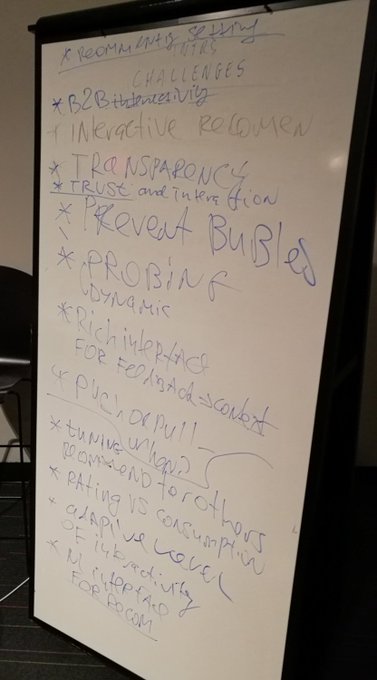 * Recommenting setting
INTRS
CHALLENGES
* B2B interactivity
* INteractive Recomen
* TRANSPARENCY
* TRUST and interaction
* Prevent BuBles
* PROBING
(DYNAMIC
* Rich interfact
FOR FEEDBACK → context
* Puch or pull
* tuning when?
Recommend for others
* RAting VS consumption
* adaptive level
OF interactivity
* NL interface
FOR RECOM